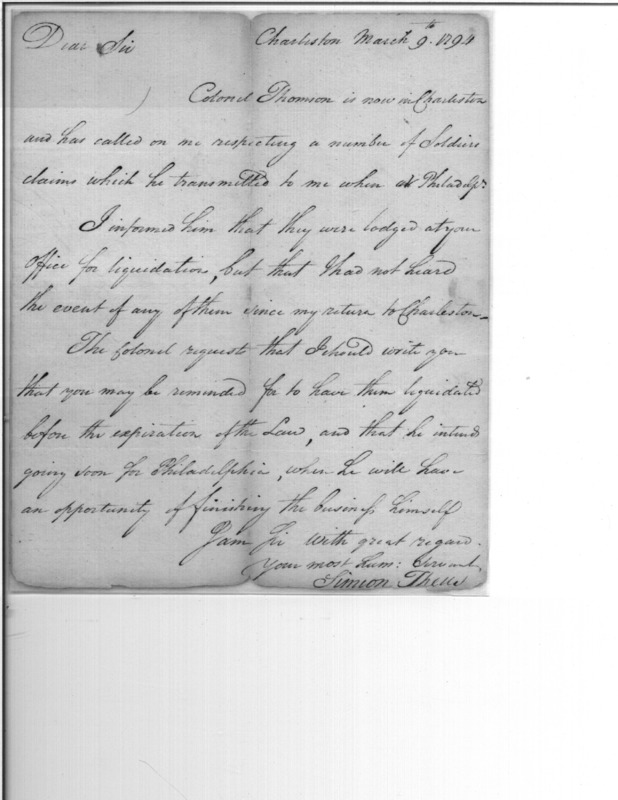 Dear Sir Charleston March 9th. 1794
Colonel Thomson is now in Charleston
and has called on me respecting a number of Soldiers
claims which he transmitted to me when at Philadelpa
I informed him that they were lodged at your
office for liquidation, but that I had not heard
the event of any of them since my return to Charleston—
The Colonel requests that I should write you
that you may be reminded for to have them liquidated
before the expiration of the Law, and that he intends
going soon for Philadelphia, when he will have
an opportunity of finishing the business himself
I am Sir with great regard.
Your most hum: Servant
Simeon